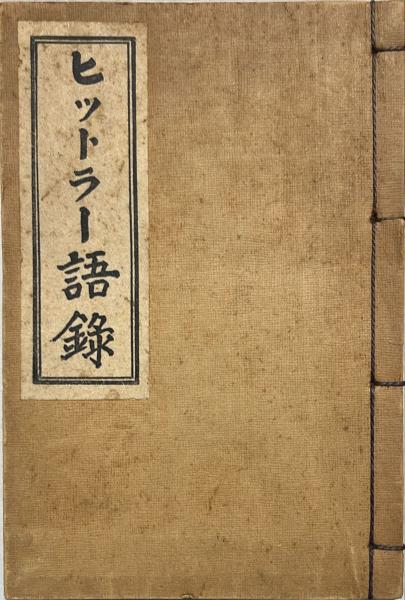 ヒットラー語錄